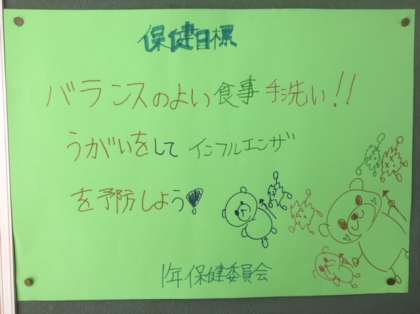 保健目標
バランスのよい食事 手洗い!!
うがいをして インフルエンザ
を予防しよう
1年 保健委員会